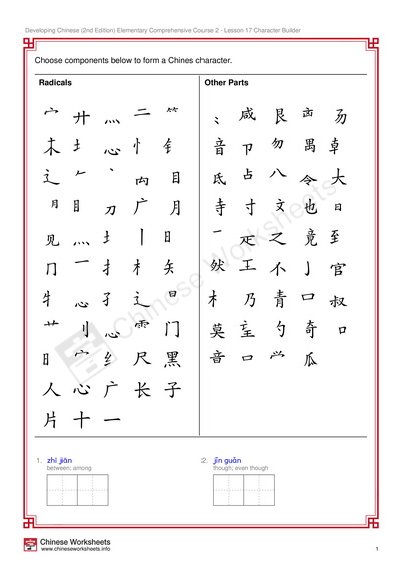 Developing Chinese (2nd Edition) Elementary Comprehensive Course 2 - Lesson 17 Character Builder
Choose components below to form a Chines character.
Radicals
Other Parts
宀 廾 灬 二 ⺮
木 土 心 忄 钅
辶 𠂉 丶 目
月 目 刀 广 月
见 灬 土 丨 日
冂 乛 扌 木 矢
牜 心 孑 辶 日
艹 刂 心 门
日 宀 纟 尺 黑
人 心 广 长 子
片 十 一
咸 艮 易
音 卩 勿 禺 卓
氐 占 八 令 大
寺 寸 文 也 日
疋 之 竟 至
然 王 不 亅 官
木 乃 青 口 叔
莫 勺 奇 口
音 口 瓜
Chinese Worksheets
1. zhī jiān
between; among
2. jǐn guǎn
though; even though
Chinese Worksheets
www.chineseworksheets.info
1